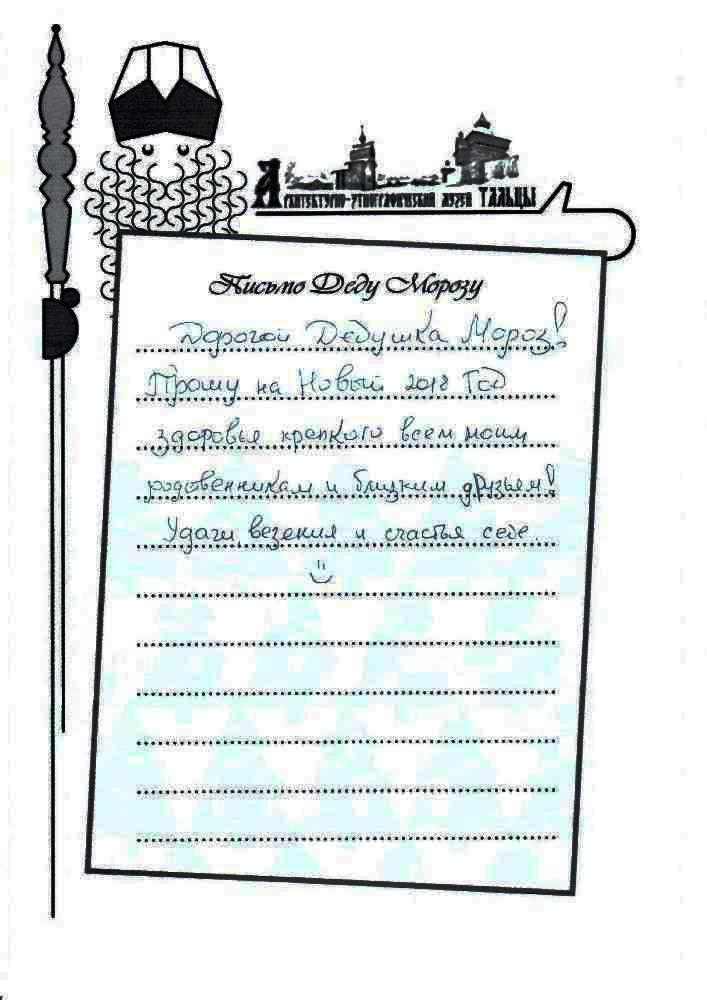 Архитектурно-этнографический музей ТАЛЬЦЫ
Письмо Деду Морозу
Дорогой Дедушка Мороз!
Прошу на Новый 2018 Год
здоровья крепкого всем моим
родственникам и близким друзьям!
Удачи, везения и счастья себе.